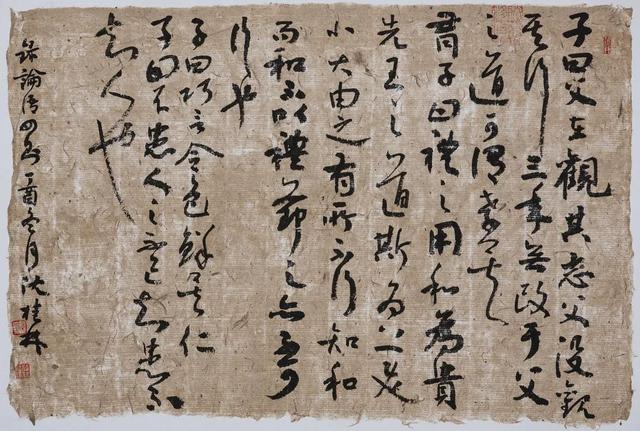 子曰父在觀其志父沒觀
其行三年無改于父
之道可謂孝矣
有子曰禮之用和為貴
先王之道斯為美
小大由之有所不行知和
而和不以禮節之亦不可
行也
子曰巧言令色鮮矣仁
子曰不患人之不己知患不
知人也
錄論語四則丁酉冬月沈桂林